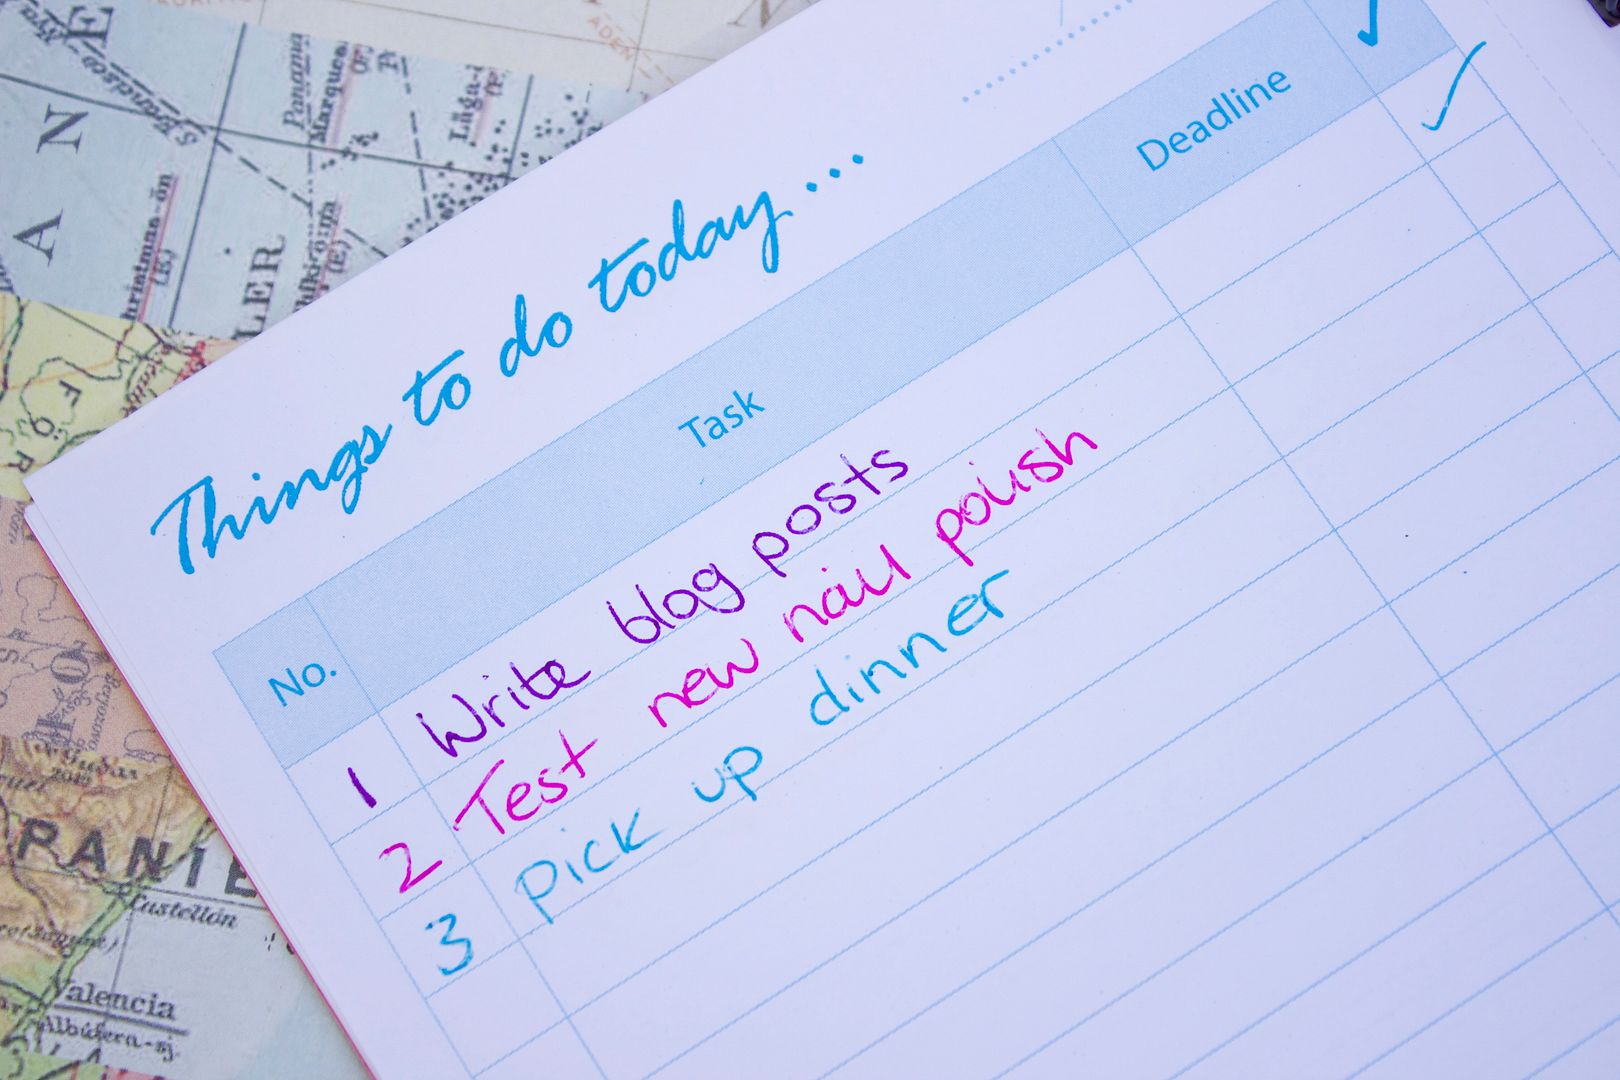 Things to do today...
No. Task Deadline ✓
1 Write blog posts ✓
2 Test new nail polish
3 Pick up dinner
ADEN
Panama
LER
PANIE
Castellón
Valencia
Albúfera-